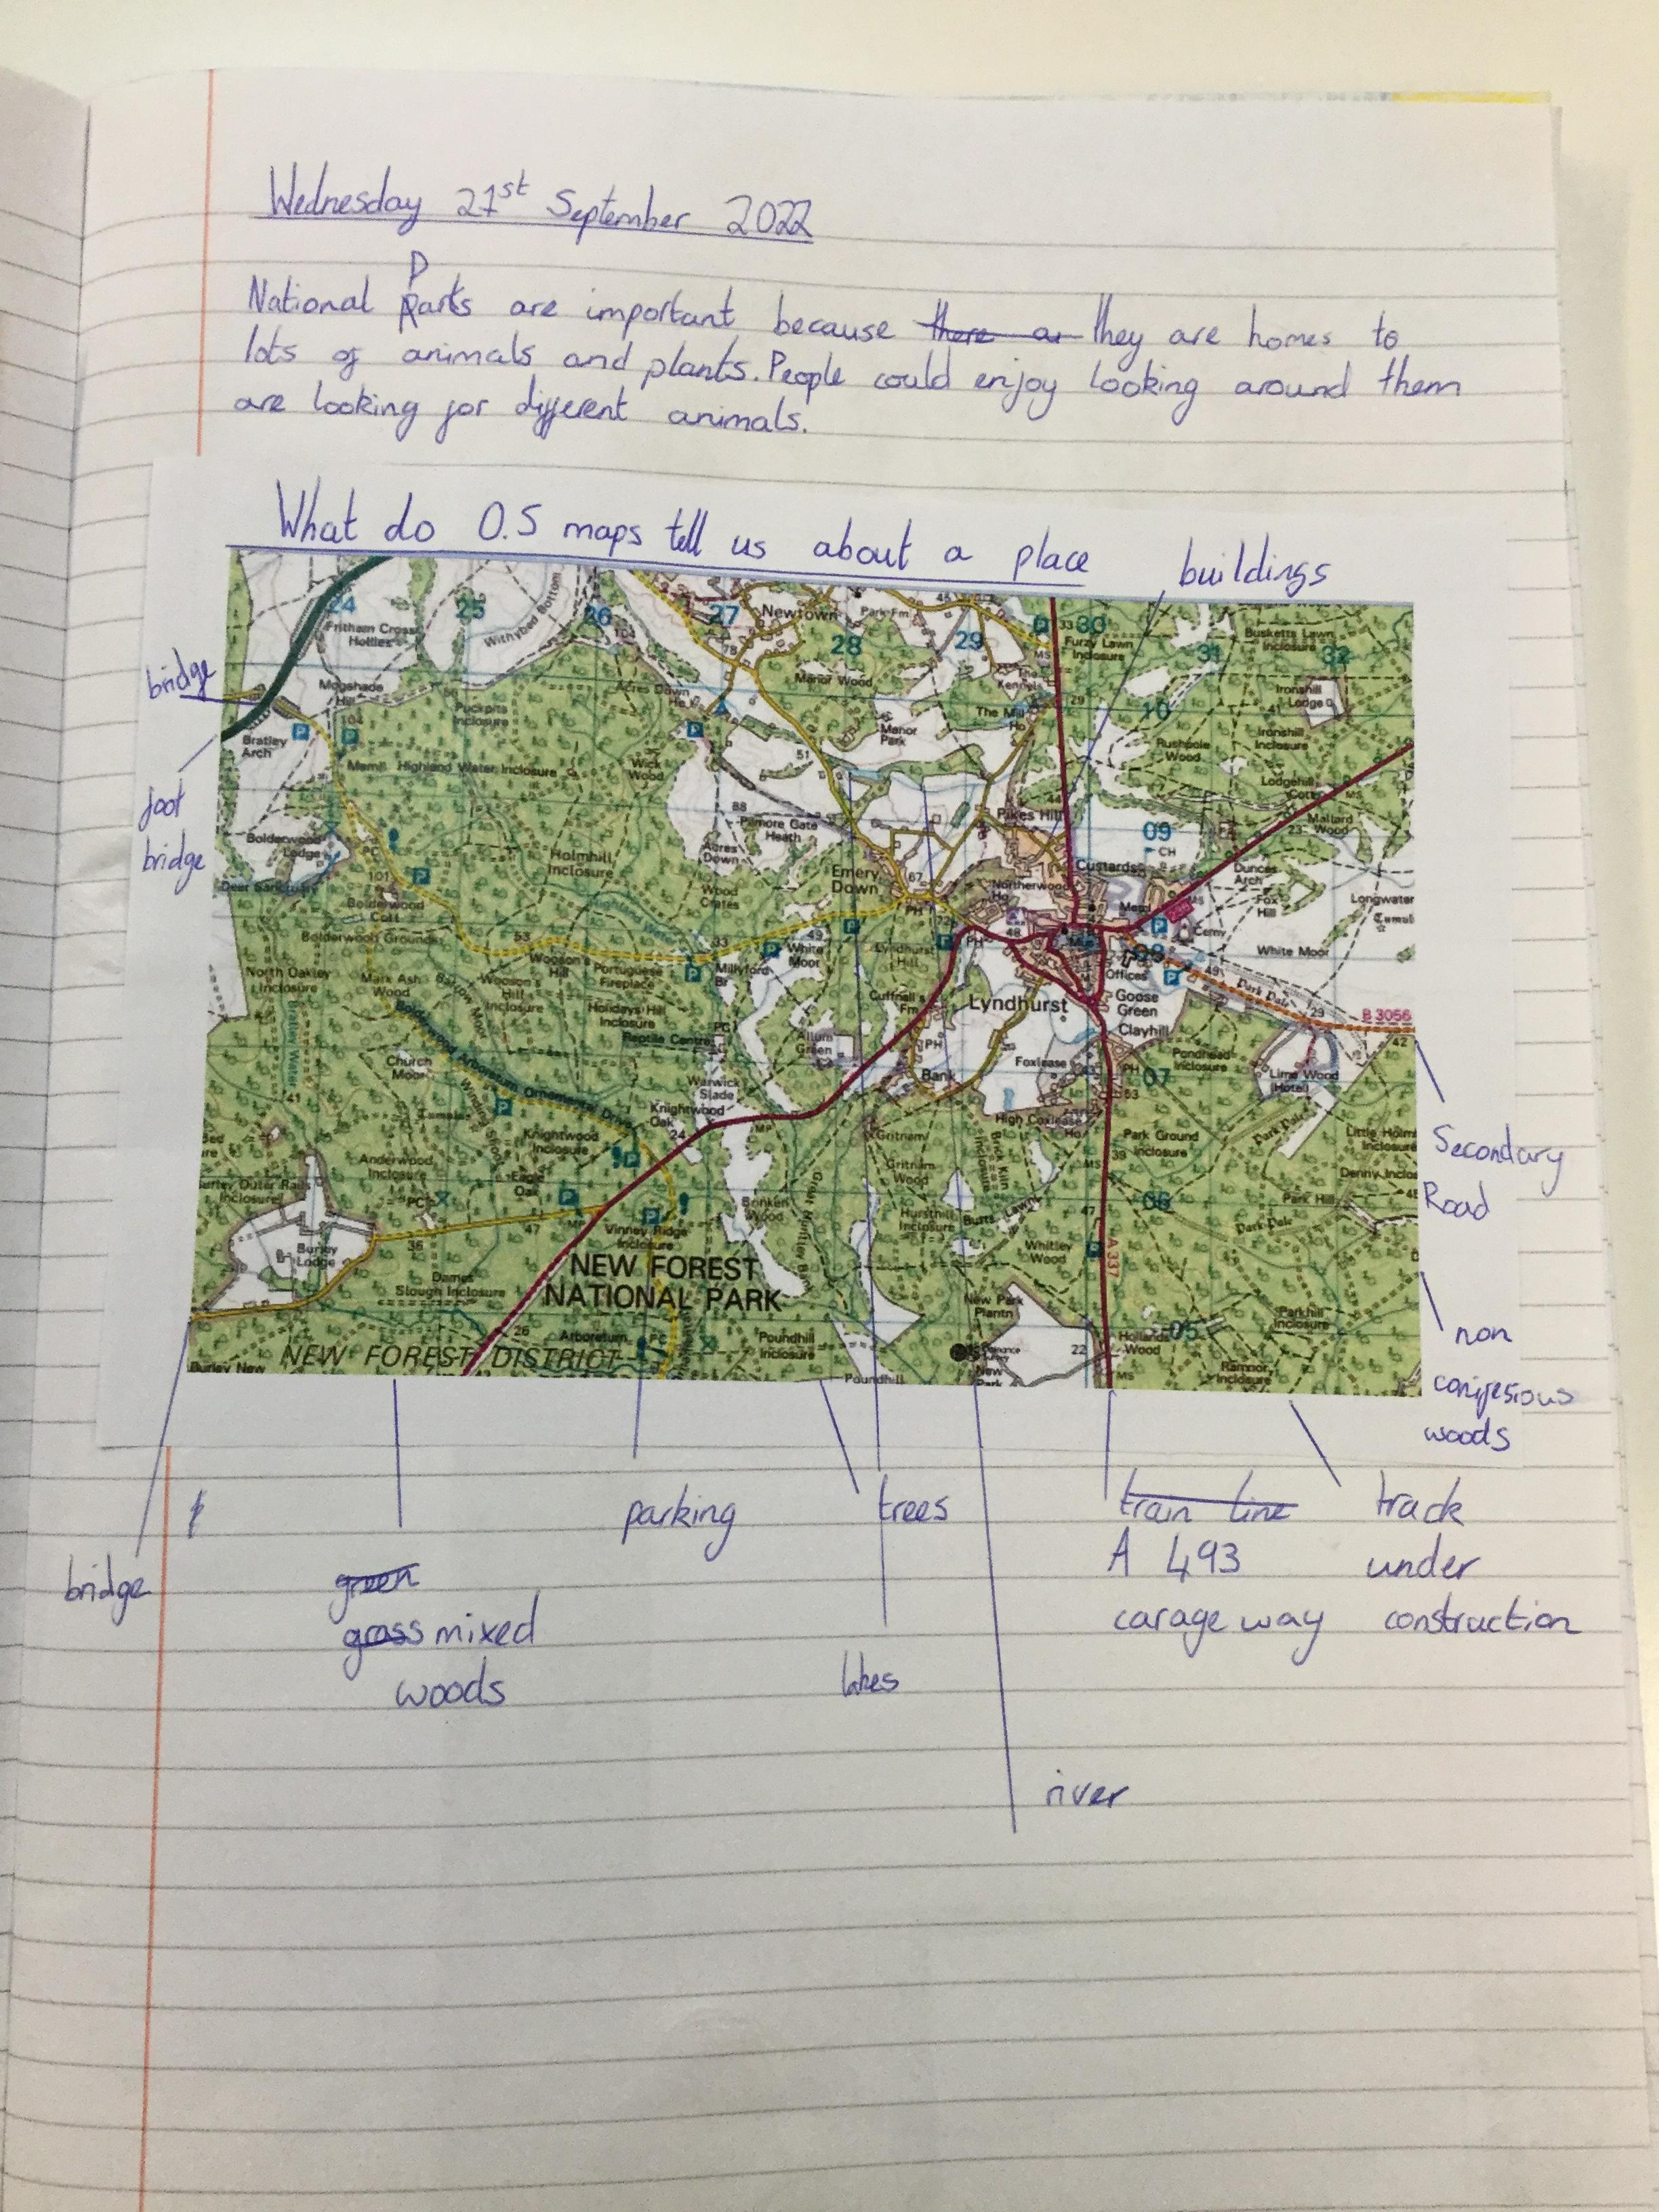 Wednesday 21st September 2022
National Parks are important because there a they are homes to
lots of animals and plants. People could enjoy looking around them
are looking for different animals.
What do O.S maps tell us about a place
buildings
bridge
foot
bridge
24
25
26
27
28
29
30
31
32
Fritham Cross
Withybed Bottom
Newtown
Park Fm
Furzy Lawn
Inclosure
Busketts Lawn
Inclosure
The
Kennels
Ironshill
Lodge
Mogshade
Hill
Puckpits
Inclosure
Acres Down
Ho
Manor Wood
The Mill
Ho
10
Manor
Park
Rushpole
Wood
Ironshill
Inclosure
Bratley
Arch
Highland Water Inclosure
Wick
Wood
Lodgehill
Cottr
Mallard
Wood
Pikes Hill
09
CH
Pilmore Gate
Heath
Acres
Down
Bolderwood
Lodge
Holmhill
Inclosure
Emery
Down
Custards
Dunces
Arch
Deer Sanctuary
Wood
Crates
Northerwood
Ho
Fox
Hill
Longwater
Bolderwood
Cott
Highland Water
PH
Cemy
Bolderwood Grounds
White
Moor
Lyndhurst
Hill
PH
08
White Moor
North Oakley
Inclosure
Mark Ash
Wood
Wooson's
Hill
Portuguese
Fireplace
Millyford
Br
Offices
Park Pale
Wooson's
Hill
Inclosure
Holidays Hill
Inclosure
Cuffnell
Fm
Lyndhurst
Goose
Green
B 3056
Bratley Water
Barrow Moor
Reptile Centre
PC
Allum
Green
PH
Clayhill
Church
Moor
Bolderwood Arboretum Ornamental Drive
Warwick
Slade
Bank
Foxlease
PH
Pondhead
Inclosure
Lime Wood
(Hotel)
07
Knightwood
Oak
High Coxlease
Ho
Knightwood
Inclosure
Gritnam
Park Ground
Inclosure
Park Pale
Little Holm
Inclosure
Anderwood
Inclosure
Eagle
Oak
Gritnam
Wood
Brick Kiln
Inclosure
Denny Inclo
Burley Outer Rails
Inclosure
PC
Brinken
Wood
Hursthill
Inclosure
Butts Lawn
06
Park Hill
Park Pale
Burley
Lodge
Vinney Ridge
Inclosure
Whitley
Wood
A 337
NEW FOREST
NATIONAL PARK
Dames
Slough Inclosure
New Park
Plantn
Parkhill
Inclosure
05
Arboretum
PC
Poundhill
Inclosure
Hollands
Wood
NEW FOREST DISTRICT
Burley New
Poundhill
New
Park
Ramnor
Inclosure
MS
Secondary
Road
non
conifesious
woods
bridge
green
grass mixed
woods
parking
trees
lakes
river
train line
A 493
carage way
track
under
construction